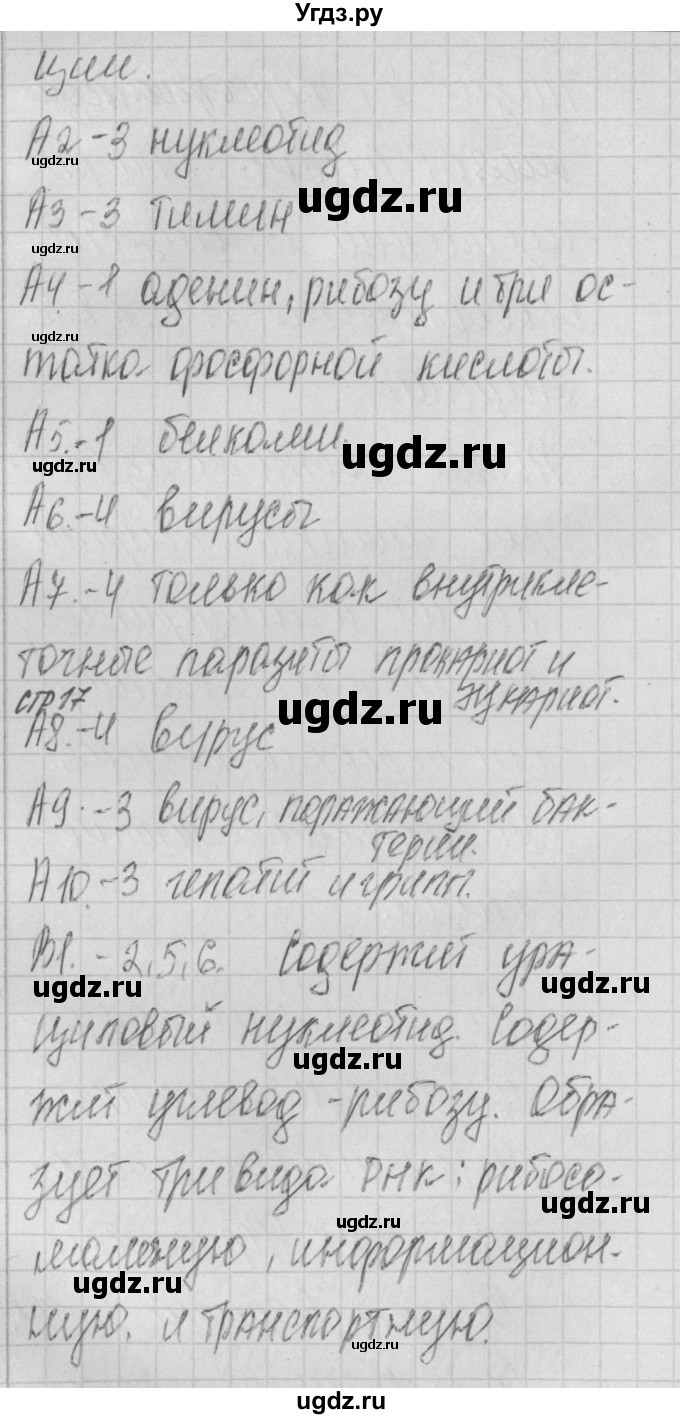 Угдз.ру
ции.
А2-3 нуклеотид
ugdz.ru
ugdz.ru
А3-3 тимин
ugdz.ru
А4.-1 аденин, рибозу и три ос-
ugdz.ru
татка фосфорной кислоты.
А5.-1 белками.
ugdz.ru
ugdz.ru
А6.-4 вирусы
А7.-4 только как внутрикле-
точные паразиты прокариот и
эукариот.
стр 17
А8.-4 вирус
ugdz.ru
А9.-3 вирус, поражающий бак-
терии.
А10.-3 гепатит и грипп.
В1.-2,5,6. Содержит ура-
ugdz.ru
ugdz.ru
циловый нуклеотид. Содер-
ugdz.ru
жит углевод -рибозу. Обра-
зует три вида РНК: рибосо-
ugdz.ru
ugdz.ru
мальную, информацион-
ugdz.ru
ную, и транспортную.
ugdz.ru
ugdz.ru